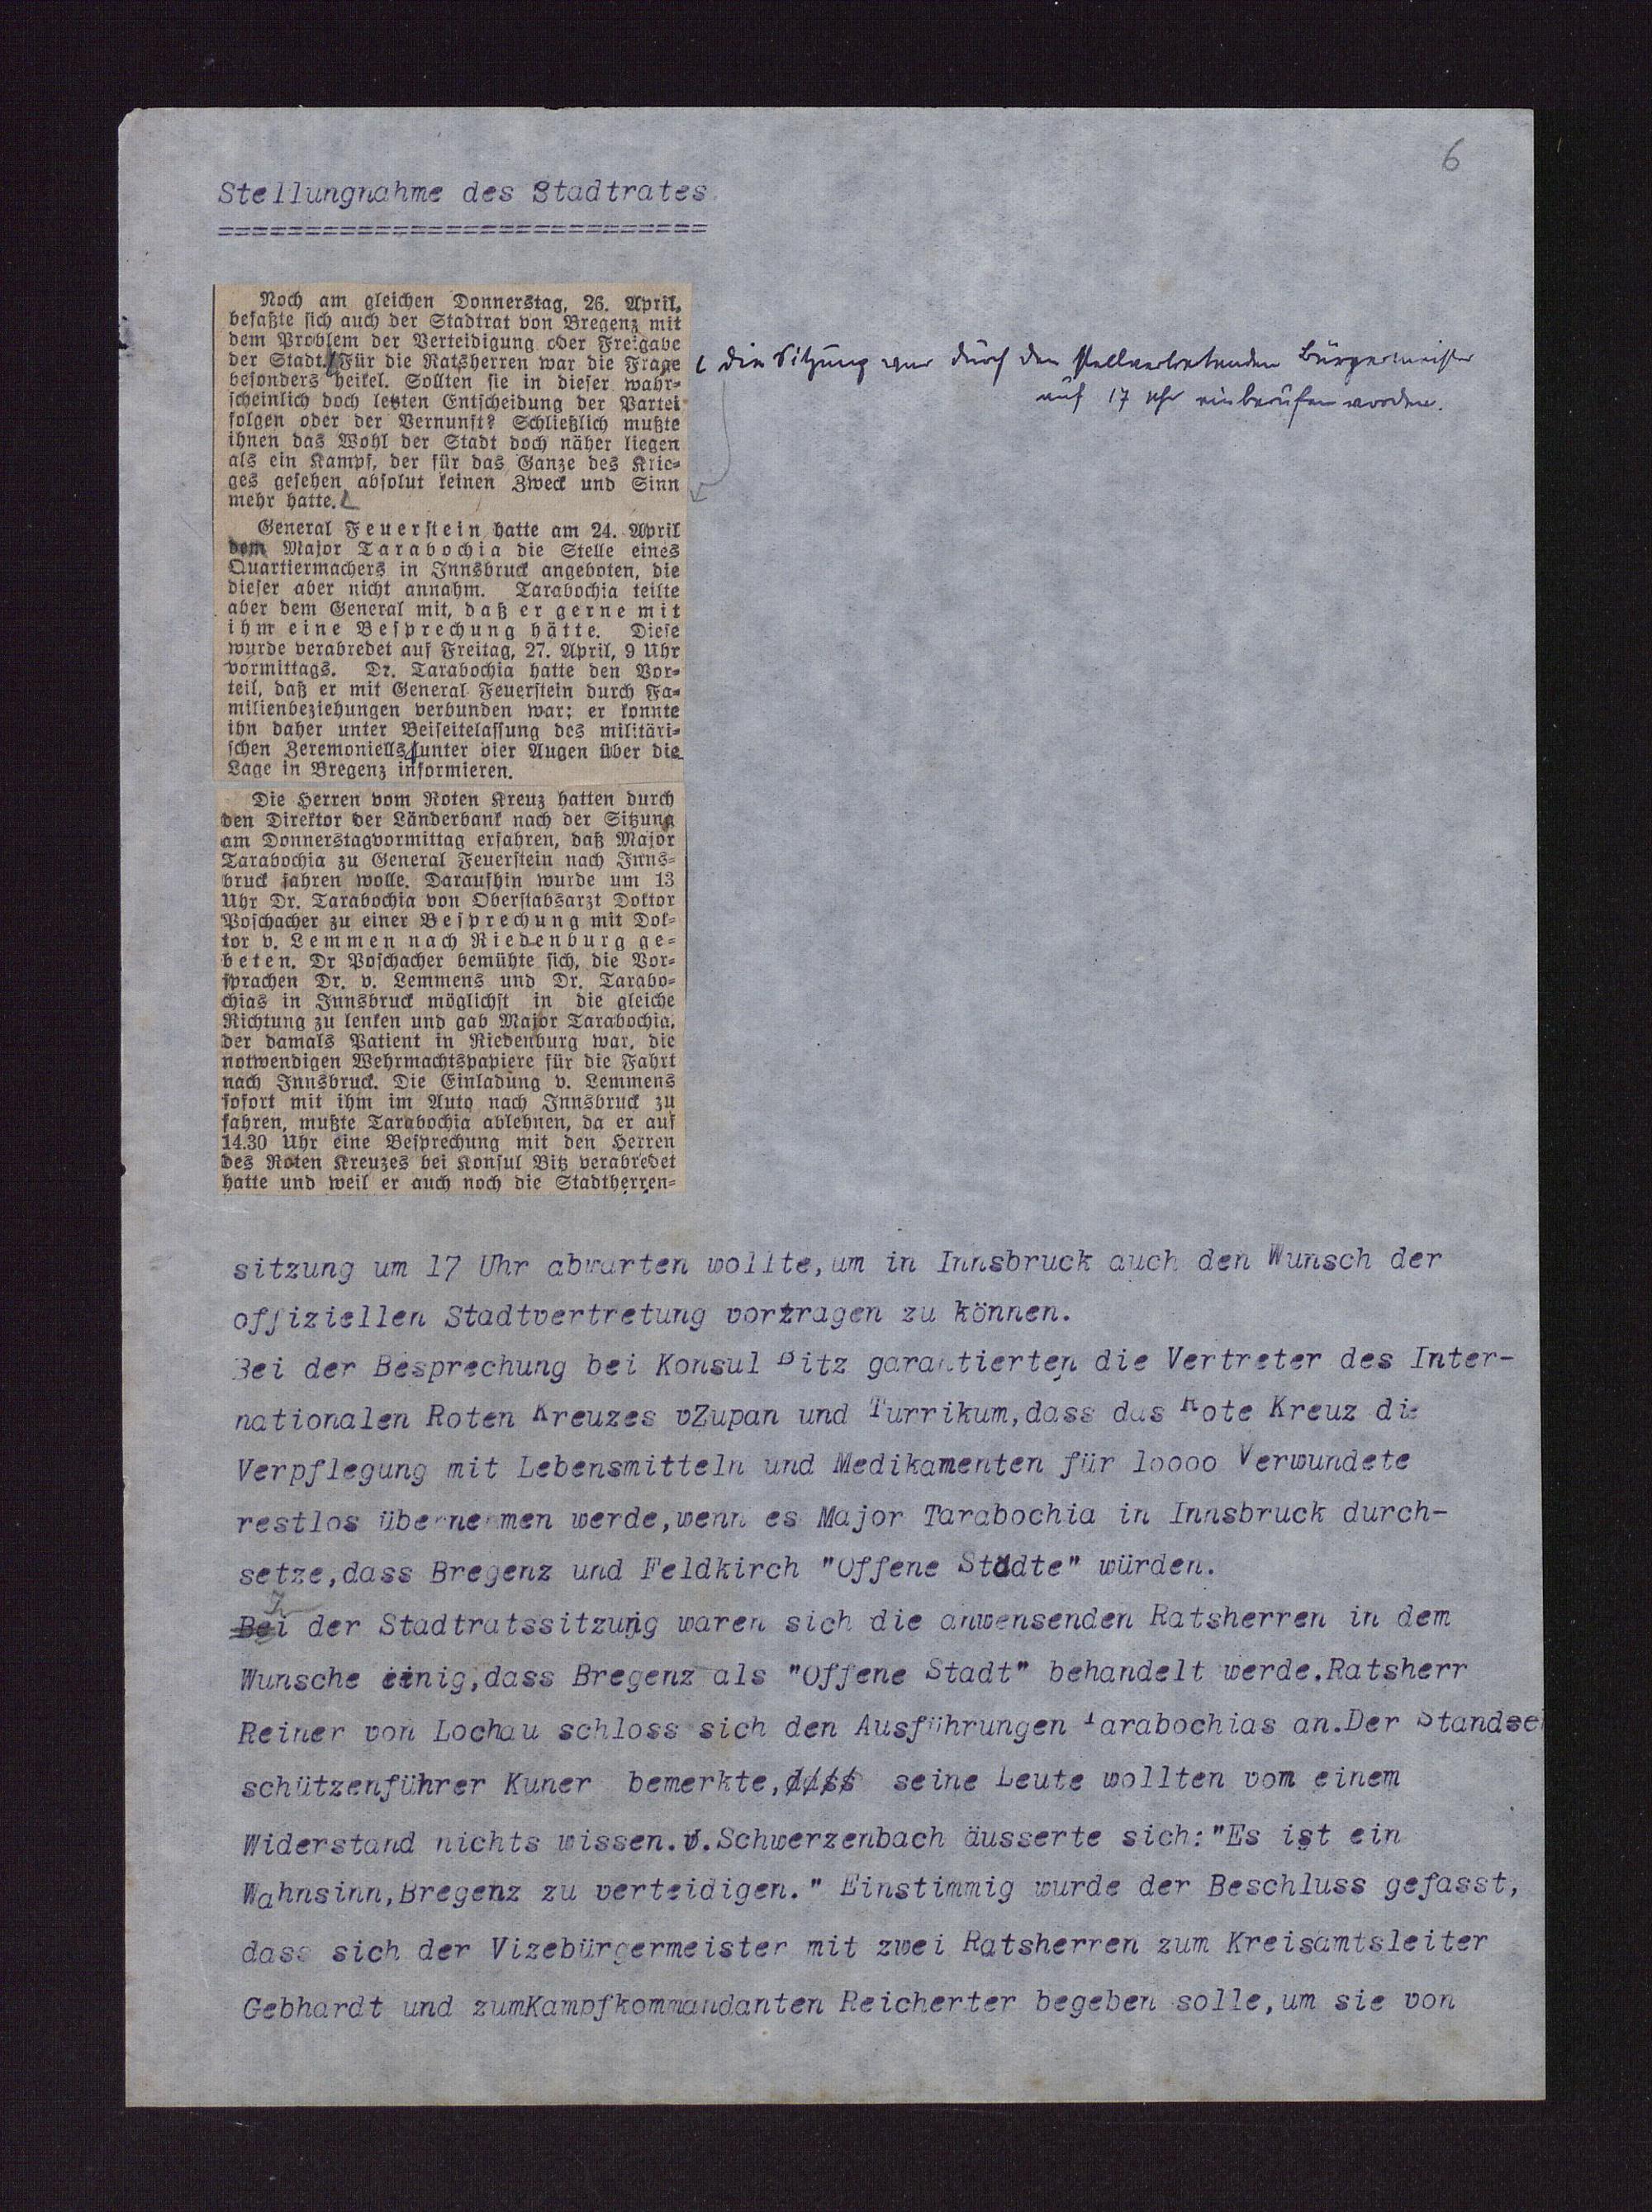 6
Stellungnahme des Stadtrates
============================
Noch am gleichen Donnerstag, 26. April,
befaßte sich auch der Stadtrat von Bregenz mit
dem Problem der Verteidigung oder Freigabe
der Stadt. Für die Ratsherren war die Frage
besonders heikel. Sollten sie in dieser wahr-
scheinlich doch letzten Entscheidung der Partei
folgen oder der Vernunft? Schließlich mußte
ihnen das Wohl der Stadt doch näher liegen
als ein Kampf, der für das Ganze des Krie-
ges gesehen absolut keinen Zweck und Sinn
mehr hatte.
die Sitzung war durch den stellvertretenden Bürgermeister
auf 17 Uhr einberufen worden.
General Feuerstein hatte am 24. April
dem Major Tarabochia die Stelle eines
Quartiermachers in Innsbruck angeboten, die
dieser aber nicht annahm. Tarabochia teilte
aber dem General mit, daß er gerne mit
ihm eine Besprechung hätte. Diese
wurde verabredet auf Freitag, 27. April, 9 Uhr
vormittags. Dr. Tarabochia hatte den Vor-
teil, daß er mit General Feuerstein durch Fa-
milienbeziehungen verbunden war; er konnte
ihn daher unter Beiseitelassung des militäri-
schen Zeremoniells unter vier Augen über die
Lage in Bregenz informieren.
Die Herren vom Roten Kreuz hatten durch
den Direktor der Länderbank nach der Sitzung
am Donnerstagvormittag erfahren, daß Major
Tarabochia zu General Feuerstein nach Inns-
bruck fahren wolle. Daraufhin wurde um 13
Uhr Dr. Tarabochia von Oberstabsarzt Doktor
Poschacher zu einer Besprechung mit Dok-
tor v. Lemmen nach Riedenburg ge-
beten. Dr Poschacher bemühte sich, die Vor-
sprachen Dr. v. Lemmens und Dr. Tarabo-
chias in Innsbruck möglichst in die gleiche
Richtung zu lenken und gab Major Tarabochia,
der damals Patient in Riedenburg war, die
notwendigen Wehrmachtspapiere für die Fahrt
nach Innsbruck. Die Einladung v. Lemmens
sofort mit ihm im Auto nach Innsbruck zu
fahren, mußte Tarabochia ablehnen, da er auf
14.30 Uhr eine Besprechung mit den Herren
des Roten Kreuzes bei Konsul Bitz verabredet
hatte und weil er auch noch die Stadtherren-
sitzung um 17 Uhr abwarten wollte,um in Innsbruck auch den Wunsch der
offiziellen Stadtvertretung vortragen zu können.
Bei der Besprechung bei Konsul Bitz garantierten die Vertreter des Inter-
nationalen Roten Kreuzes vZupan und Turrikum,dass das Rote Kreuz die
Verpflegung mit Lebensmitteln und Medikamenten für 10000 Verwundete
restlos übernehmen werde,wenn es Major Tarabochia in Innsbruck durch-
setze,dass Bregenz und Feldkirch "Offene Städte" würden.
Bei der Stadtratssitzung waren sich die anwensenden Ratsherren in dem
Wunsche einig,dass Bregenz als "Offene Stadt" behandelt werde.Ratsherr
Reiner von Lochau schloss sich den Ausführungen Tarabochias an.Der Standse
schützenführer Kuner bemerkte,dass seine Leute wollten vom einem
Widerstand nichts wissen.v.Schwerzenbach äusserte sich:"Es ist ein
Wahnsinn,Bregenz zu verteidigen." Einstimmig wurde der Beschluss gefasst,
dass sich der Vizebürgermeister mit zwei Ratsherren zum Kreisamtsleiter
Gebhardt und zumKampfkommandanten Reicherter begeben solle,um sie von